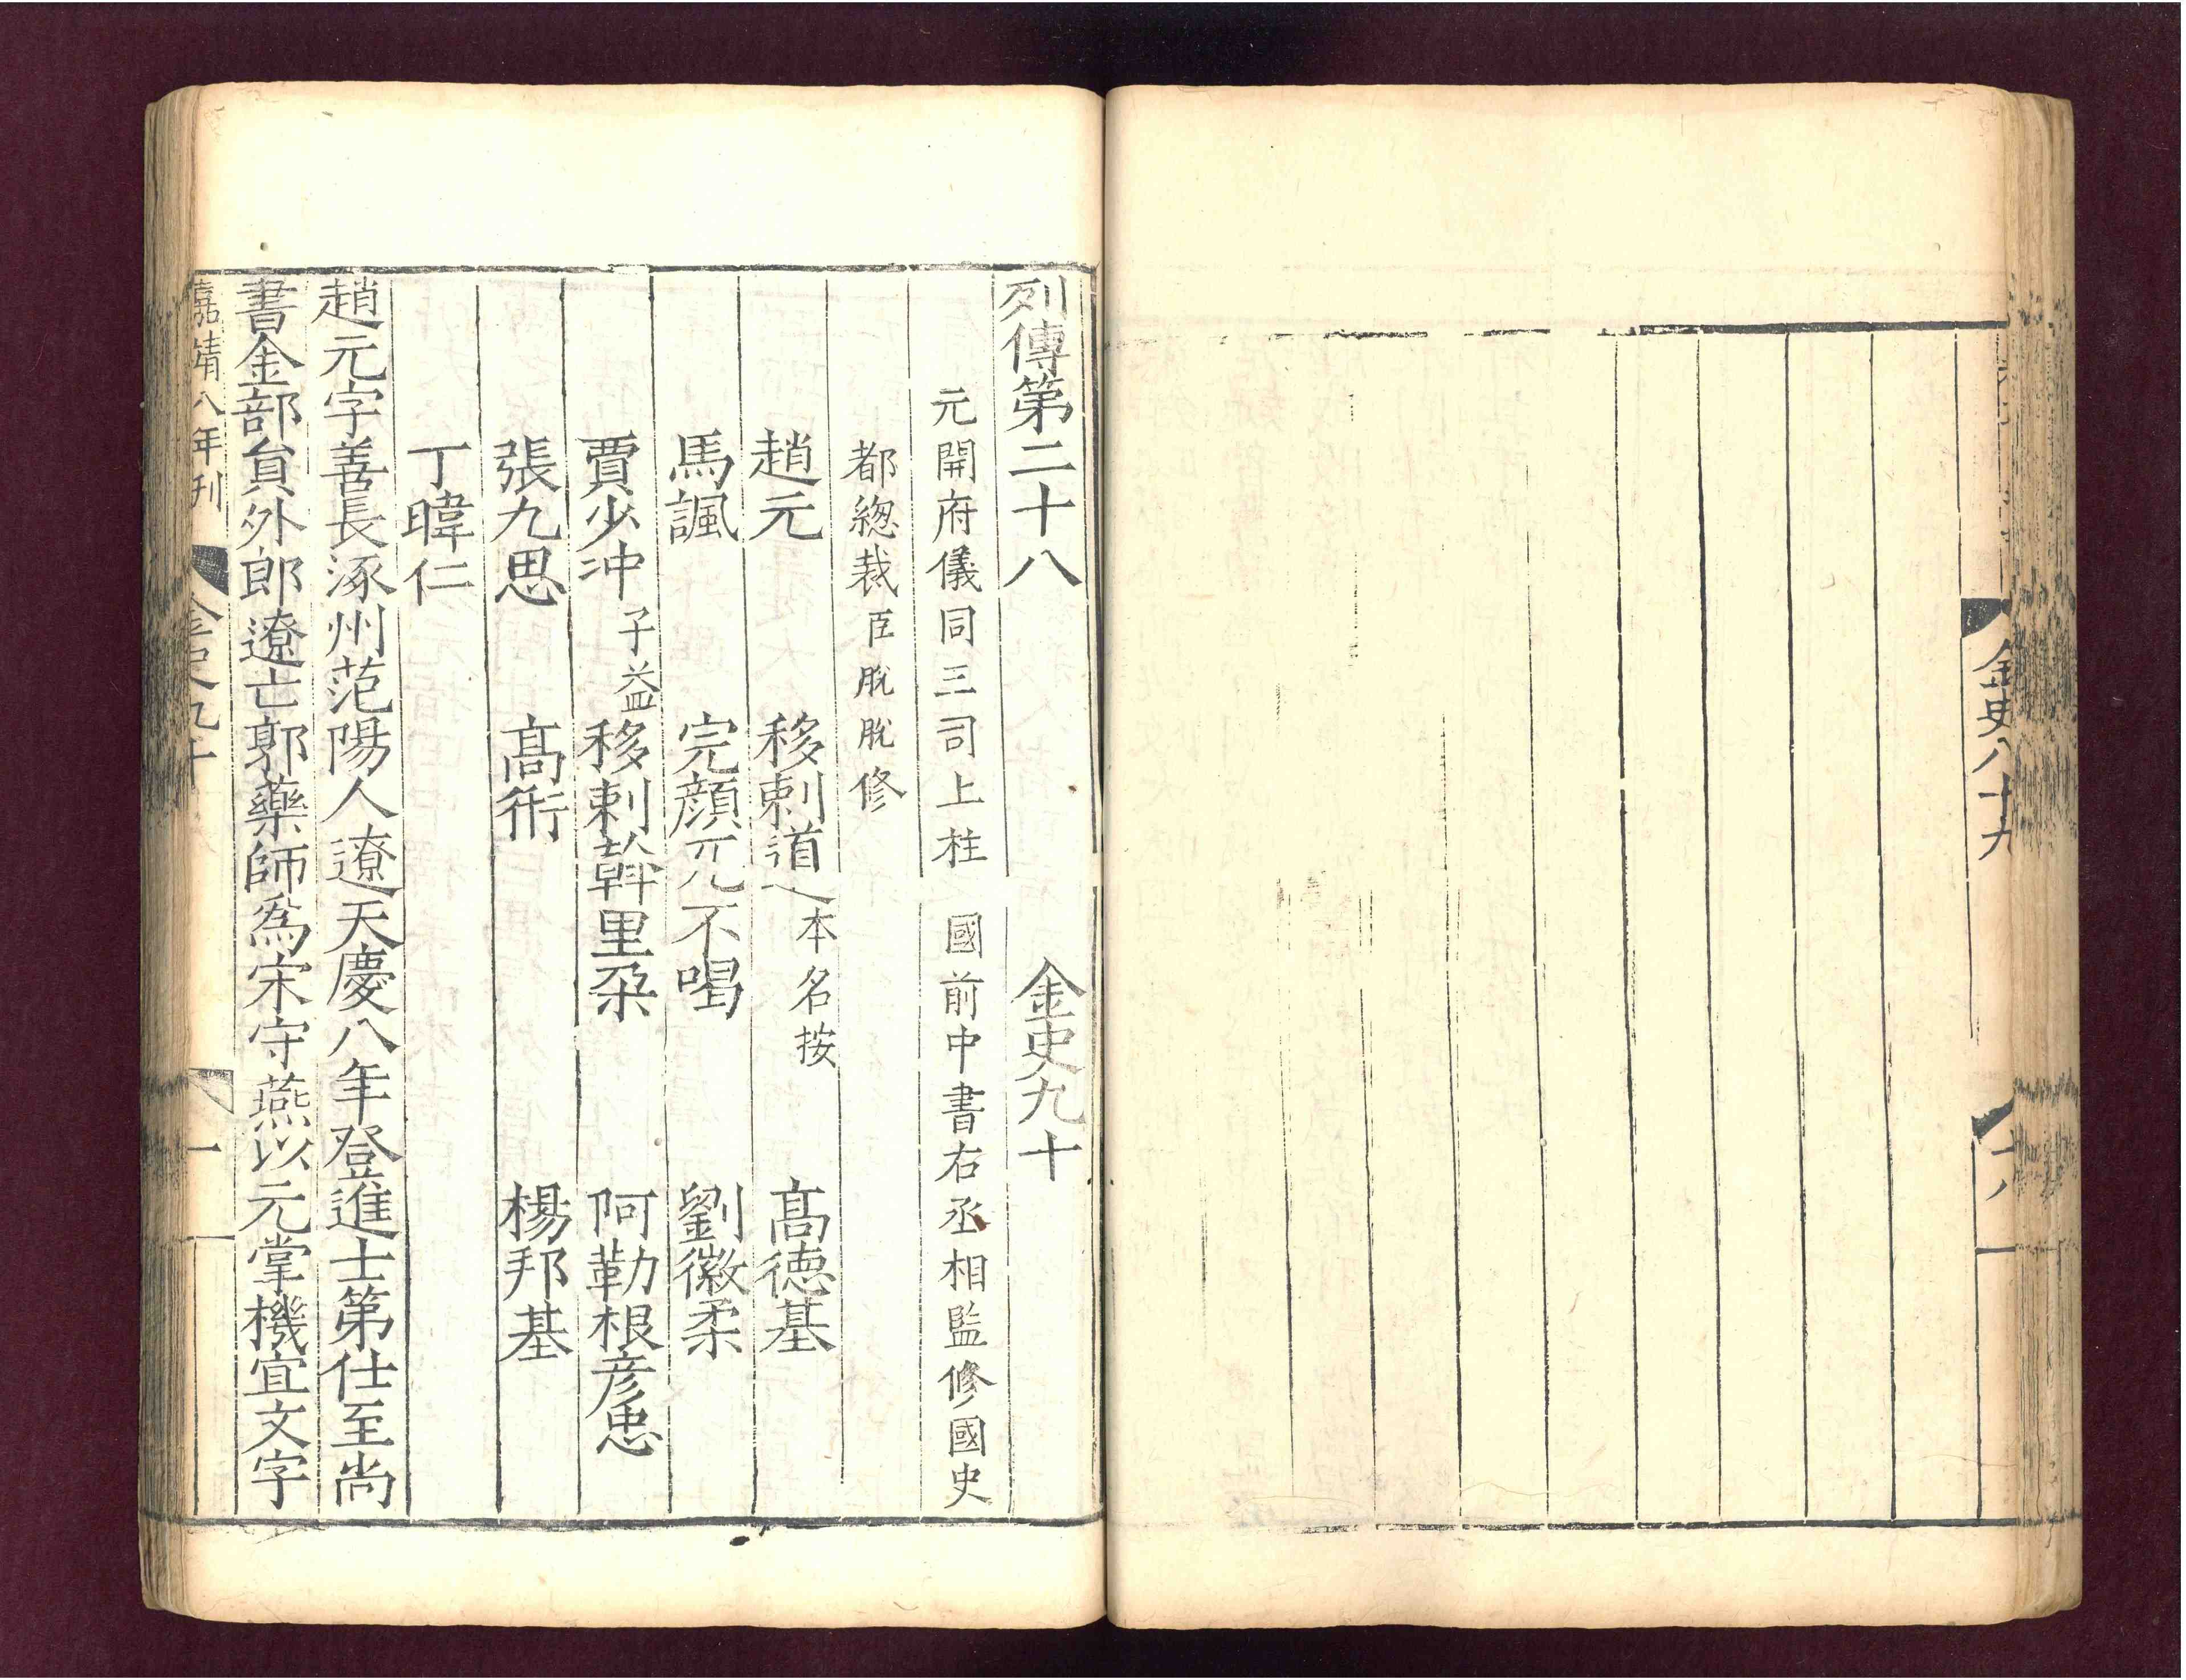 金史八十九
十八
列傳第二十八 金史九十
元開府儀同三司上柱國前中書右丞相監修國史
都緫裁臣脫脫修
趙元 移剌道 本名按 髙德基
馬諷 完顏兀不喝 劉徽柔
賈少冲 子益 移剌斡里朶 阿勒根彦忠
張九思 髙衎 楊邦基
丁暐仁
趙元字善長涿州范陽人遼天慶八年登進士第仕至尚
書金部員外郎遼亡郭藥師爲宋守燕以元掌機宜文字
嘉靖八年刊 金史九十 一